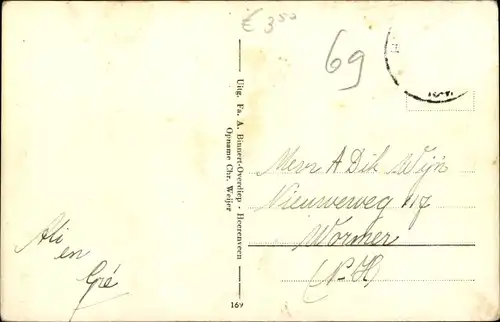 € 3⁵⁰
69
Uitg. Fa. A. Binnert-Overdiep - Heerenveen
Opname Chr. Weijer
Mevr A Dik Wijn
Nieuweweg 117
Wormer
(N-H)
Ali
en
Gré
169